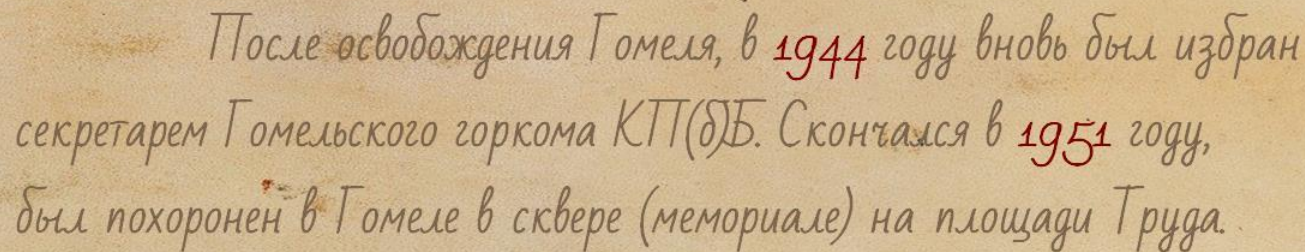 После освобождения Гомеля, в 1944 году вновь был избран
секретарем Гомельского горкома КП(б)Б. Скончался в 1951 году,
был похоронен в Гомеле в сквере (мемориале) на площади Труда.